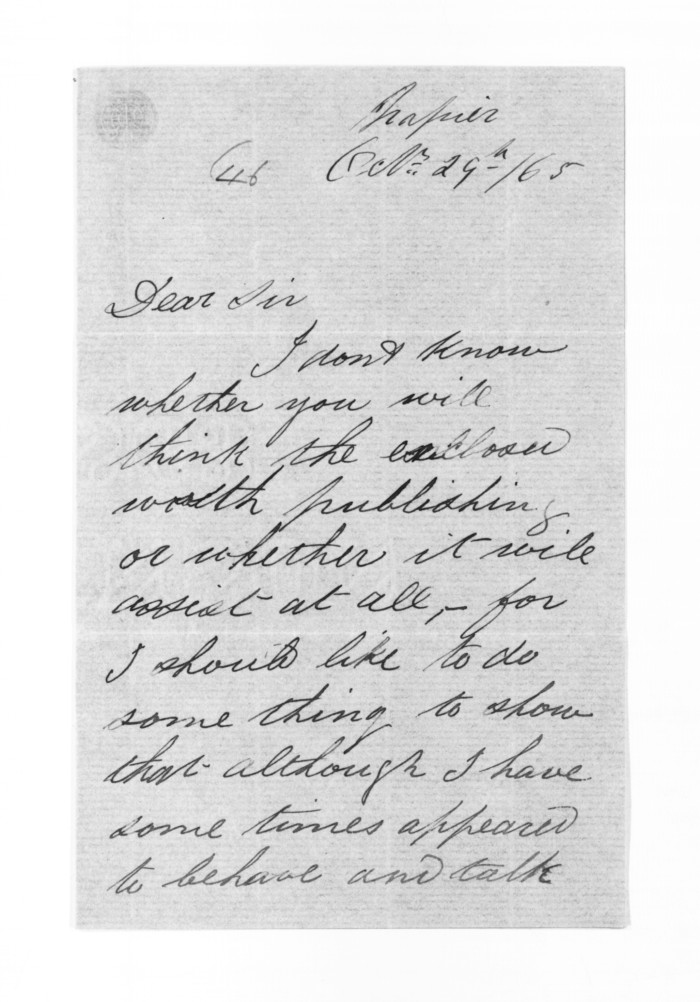 Napier
(46 Octr 29th/65
Dear Sir
I dont know
whether you will
think the enclosed
worth publishing
or whether it will
assist at all,- for
I should like to do
some thing to show
that although I have
some times appeared
to behave and talk